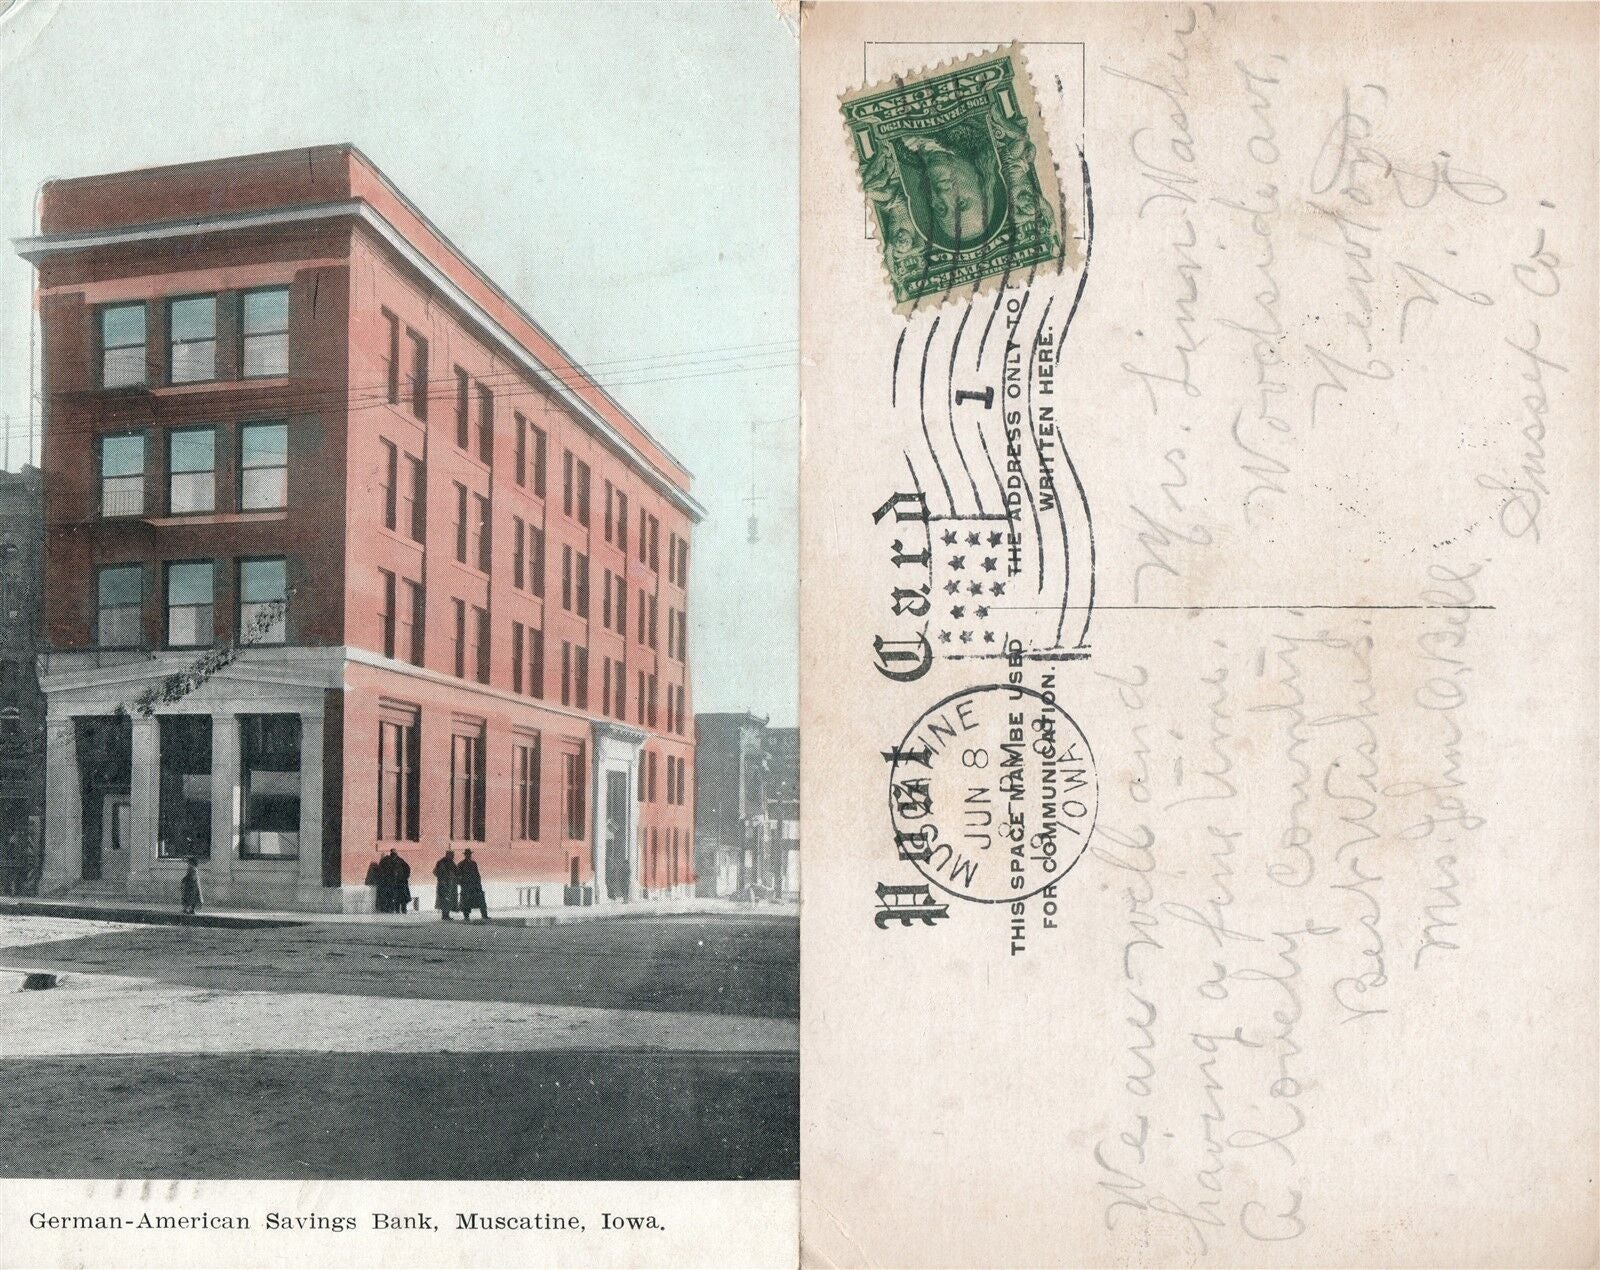 German-American Savings Bank, Muscatine, Iowa.
Post Card
THIS SPACE MAY BE USED
FOR COMMUNICATION.
THE ADDRESS ONLY TO
WRITTEN HERE.
MUSCATINE
JUN 8
8 PM
1908
IOWA
1
ONE CENT
POSTAGE
1 1
1706 FRANKLIN 1790
UNITED STATES OF
AMERICA
We are well and
having a fine time.
A lovely country.
Best Wishes.
Mrs John O. Bell.
Mrs. Simon Washer
Woodside ave.
Newton,
N. J.
Sussex Co.